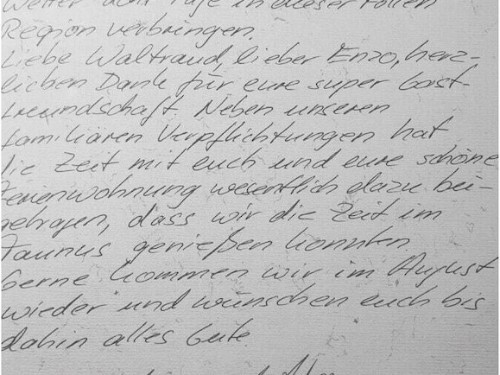 Wetter acht Tage in dieser tollen
Region verbringen.
Liebe Waltraud, lieber Enzo, herz-
lichen Dank für eure super Gast-
freundschaft. Neben unseren
familiären Verpflichtungen hat
die Zeit mit euch und eure schöne
Ferienwohnung wesentlich dazu bei-
getragen, dass wir die Zeit im
Taunus genießen konnten.
Gerne kommen wir im August
wieder und wünschen euch bis
dahin alles Gute.